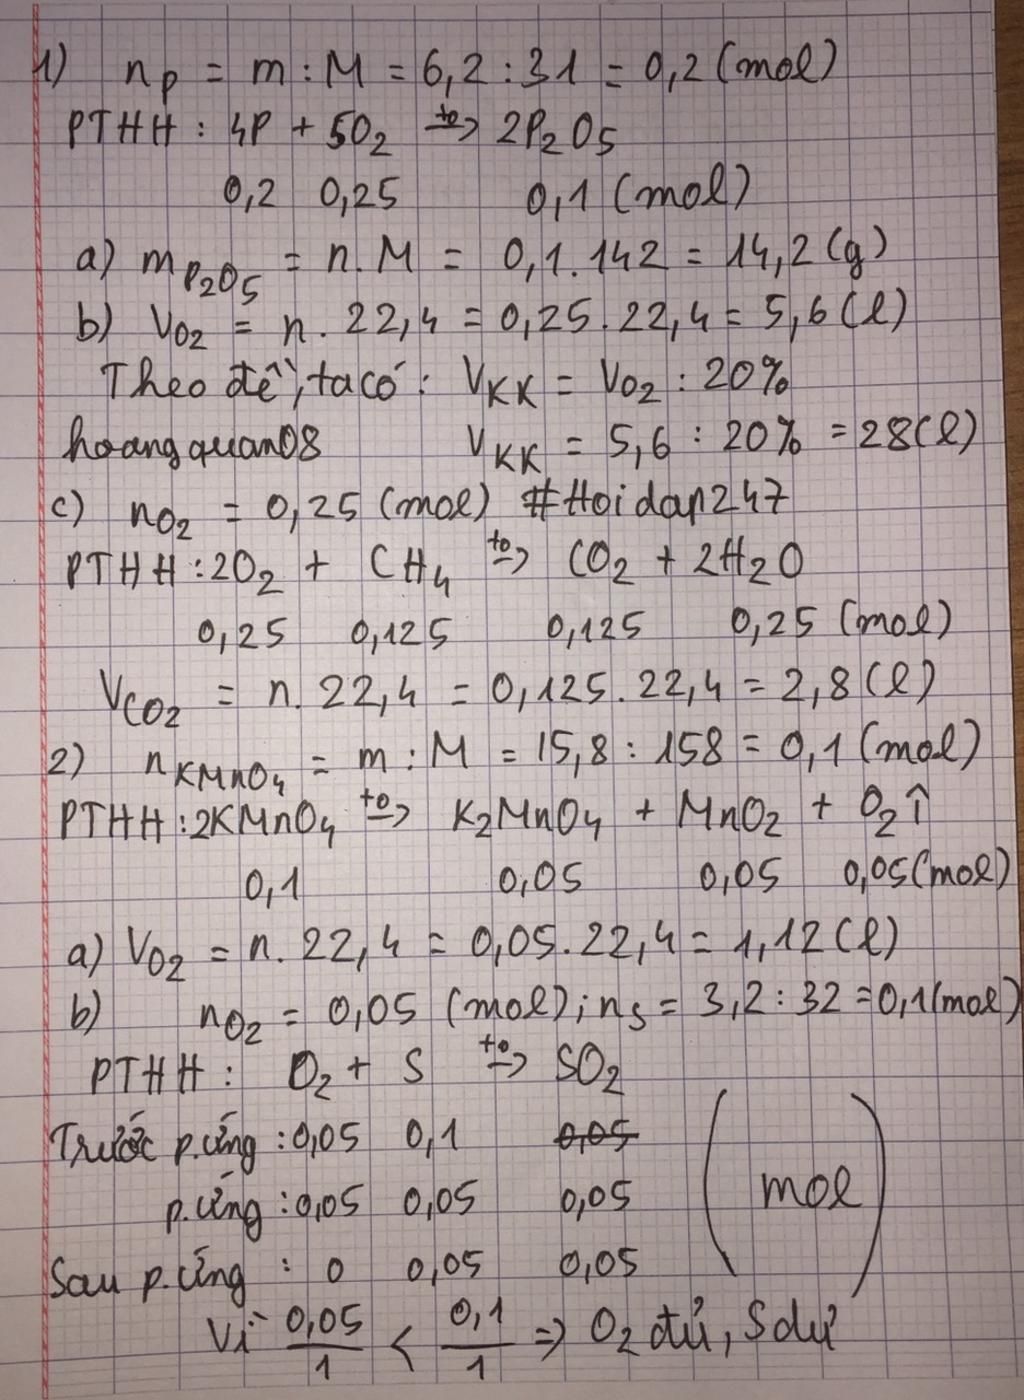 1) nP = m : M = 6,2 : 31 = 0,2 (mol)
PTHH : 4P + 5O2 to→ 2P2O5
0,2 0,25 0,1 (mol)
a) mP2O5 = n.M = 0,1.142 = 14,2 (g)
b) VO2 = n . 22,4 = 0,25.22,4 = 5,6 (l)
Theo đề, ta có : VKK = VO2 : 20%
hoangquan08 VKK = 5,6 : 20% = 28(l)
c) nO2 = 0,25 (mol) #Hoidap247
PTHH : 2O2 + CH4 to→ CO2 + 2H2O
0,25 0,125 0,125 0,25 (mol)
VCO2 = n. 22,4 = 0,125.22,4 = 2,8 (l)
2) nKMnO4 = m : M = 15,8 : 158 = 0,1 (mol)
PTHH : 2KMnO4 to→ K2MnO4 + MnO2 + O2↑
0,1 0,05 0,05 0,05(mol)
a) VO2 = n. 22,4 = 0,05.22,4 = 1,12 (l)
b) nO2 = 0,05 (mol); nS = 3,2 : 32 = 0,1(mol)
PTHH : O2 + S to→ SO2
Trước p.ứng : 0,05 0,1 0,05
p.ứng : 0,05 0,05 0,05 ( mol )
Sau p.ứng : 0 0,05 0,05
Vì 0,05/1 < 0,1/1 => O2 đủ, S dư